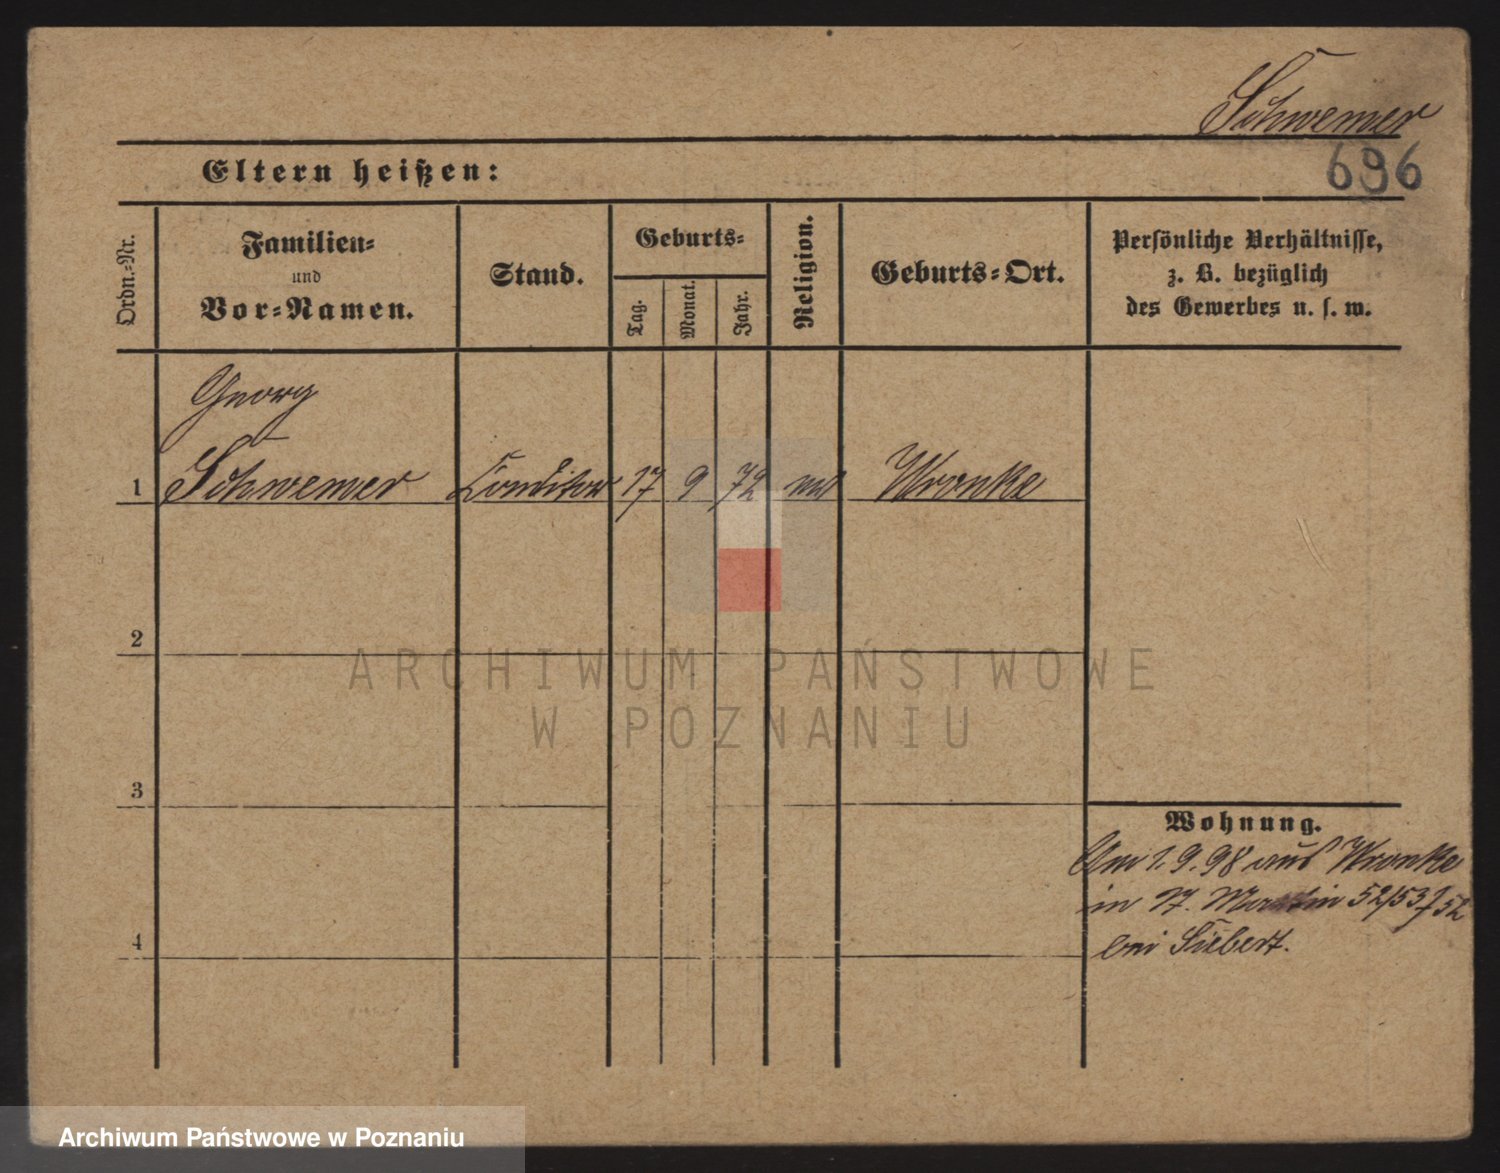 Schwemer
696
Eltern heißen:
Ordn.-Nr.
Familien-
und
Vor-Namen.
Stand.
Geburts-
Tag.
Monat.
Jahr.
Religion.
Geburts-Ort.
Persönliche Verhältnisse,
z. B. bezüglich
des Gewerbes u. s. w.
Georg
1 Schwemer Conditor 17 9 72 Wronke
2
3
4
Wohnung.
Am 1.9.98 aus Wronke
in Martin 52/53
bei Siebert.
ARCHIWUM PAŃSTWOWE
W POZNANIU
Archiwum Państwowe w Poznaniu